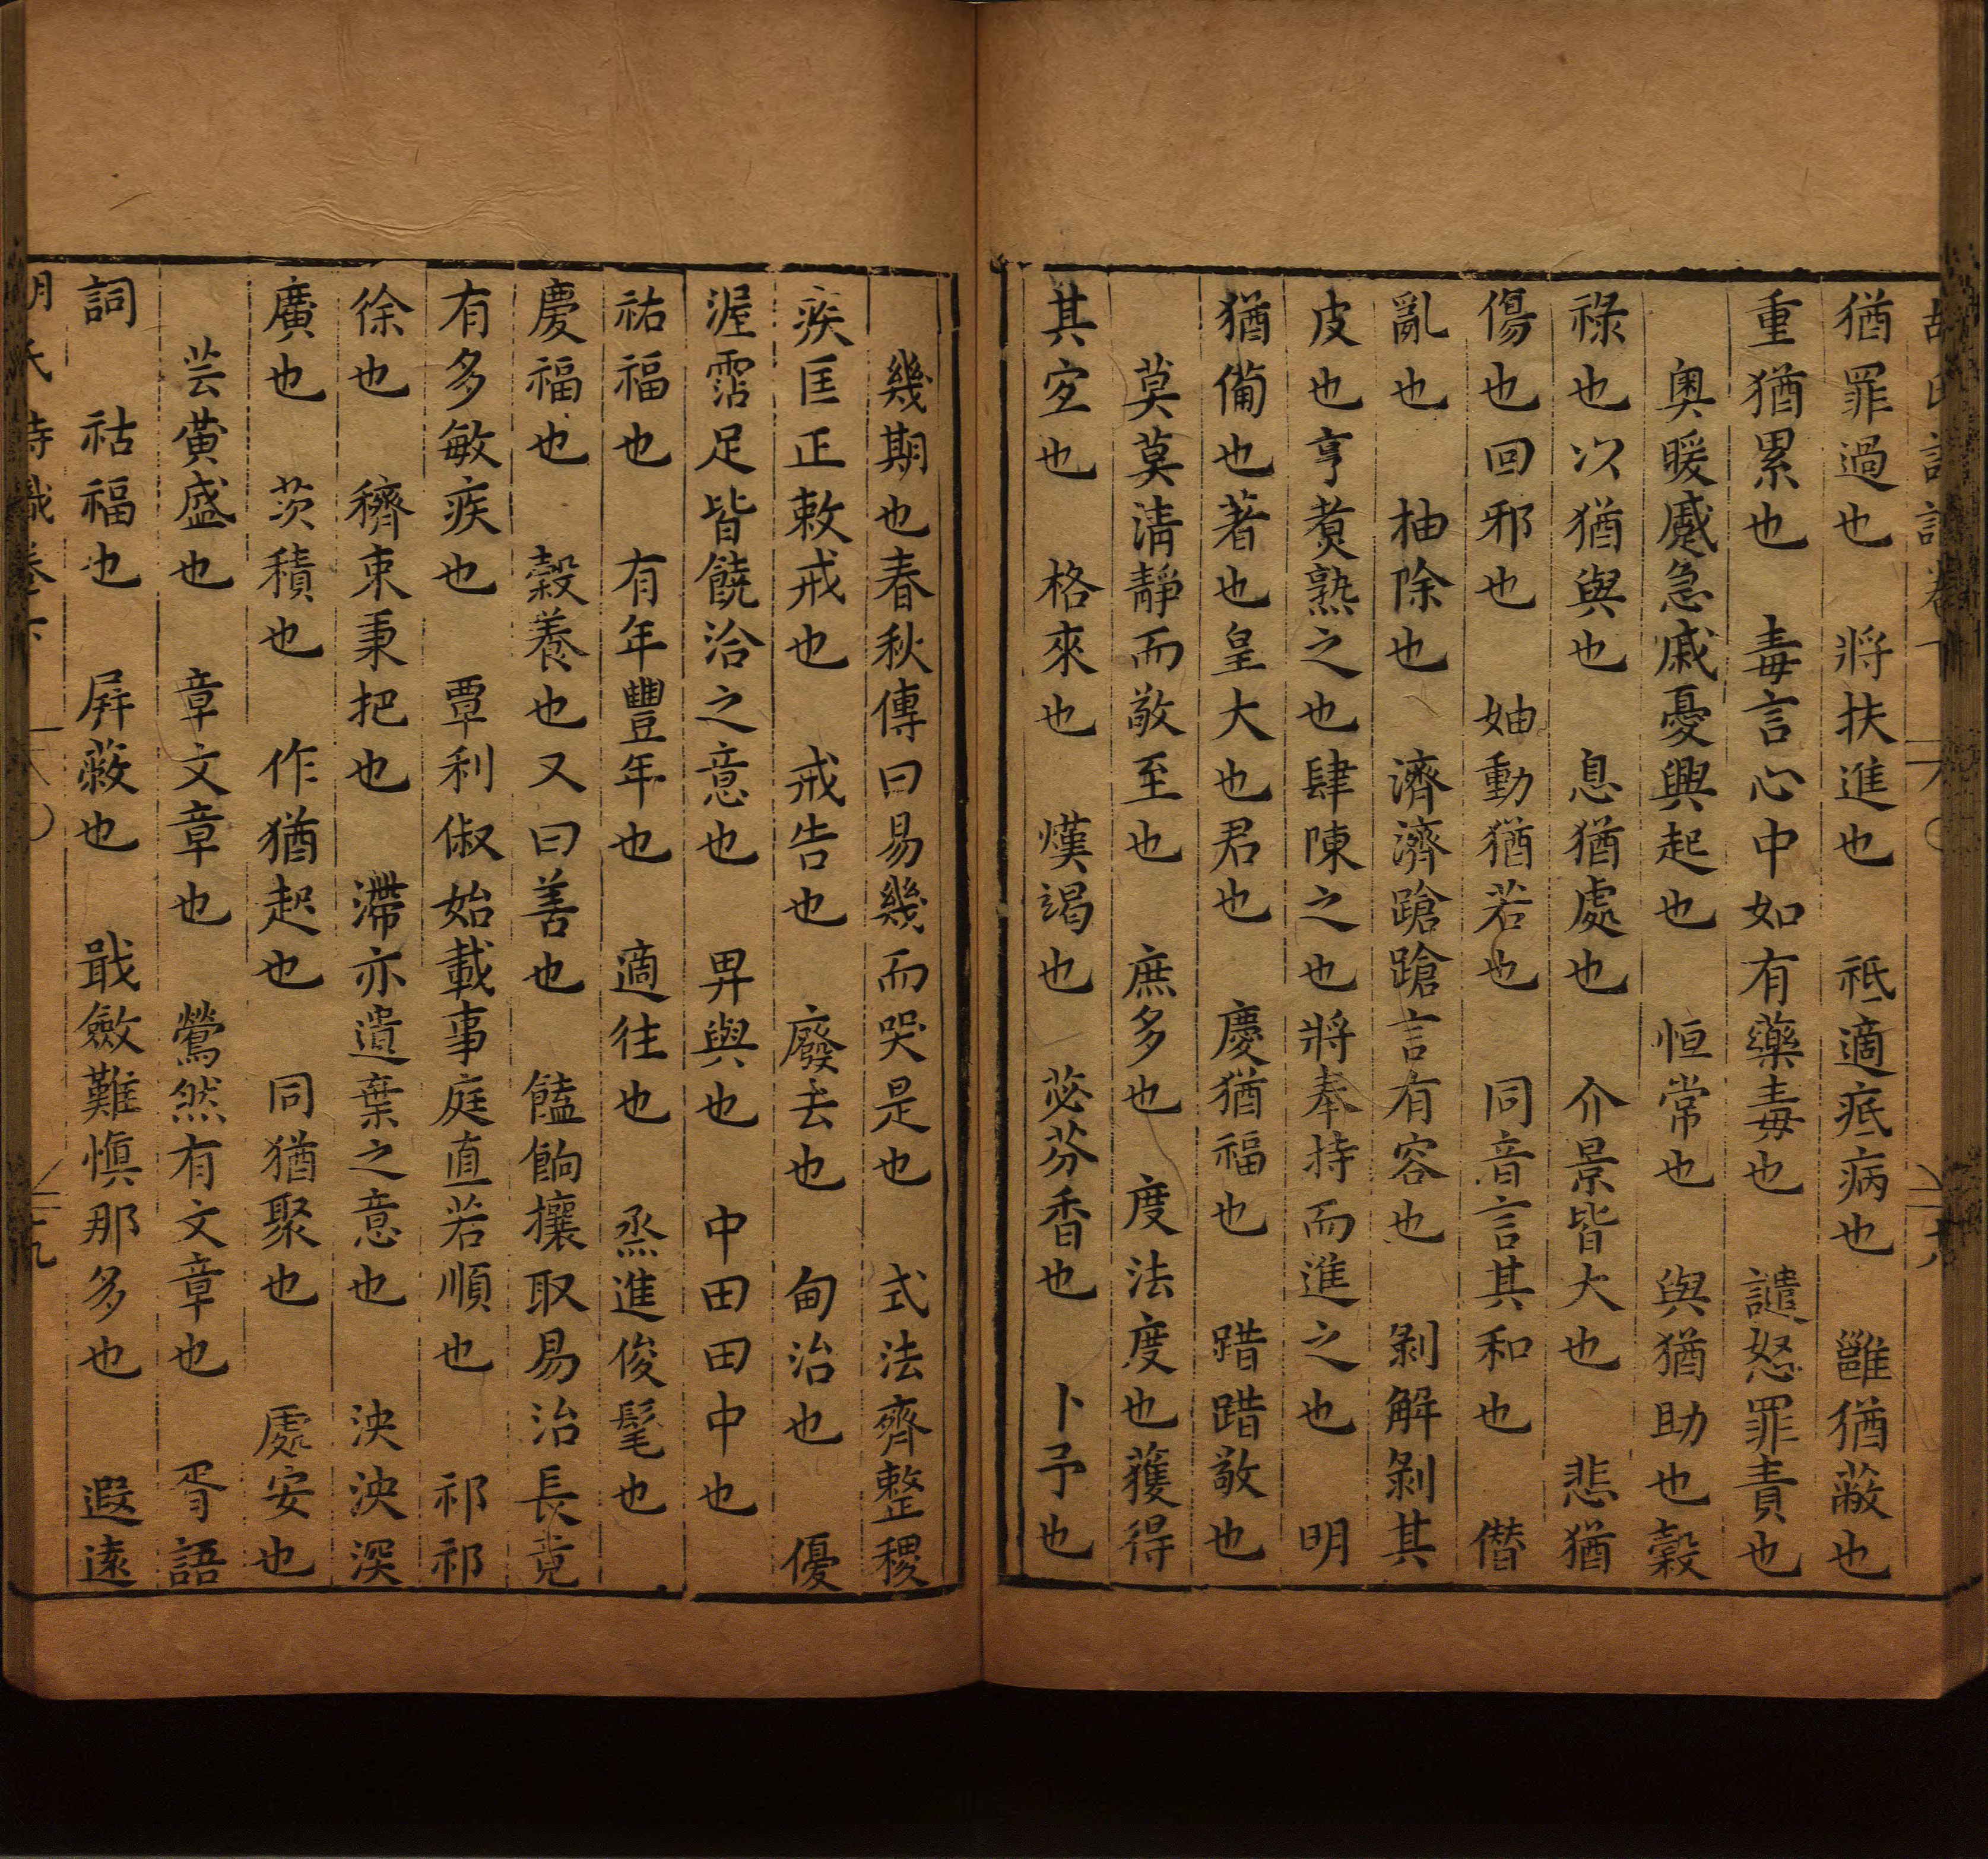 猶罪過也　將扶進也　祗適疧病也　雝猶蔽也
重猶累也　毒言心中如有藥毒也　譴怒罪責也
奧暖蹙急戚憂興起也　恒常也　與猶助也穀
祿也以猶與也　息猶處也　介景皆大也　悲猶
傷也回邪也　妯動猶若也　同音言其和也　僭
亂也　抽除也　濟濟蹌蹌言有容也　剝解剝其
皮也亨煑熟之也肆陳之也將奉持而進之也　明
猶備也著也皇大也君也　慶猶福也　踖踖敬也
莫莫清靜而敬至也　庶多也　度法度也獲得
其宜也　格來也　熯竭也　苾芬香也　卜予也
幾期也春秋傳曰易幾而哭是也　式法齊整稷
疾匡正敕戒也　戒告也　廢去也　甸治也　優
渥霑足皆饒洽之意也　畀與也　中田田中也
祐福也　有年豐年也　適往也　烝進俊髦也
慶福也　穀養也又曰善也　饁餉攘取易治長竟
有多敏疾也　覃利俶始載事庭直若順也　祁祁
徐也　穧束秉把也　滯亦遺棄之意也　泱泱深
廣也　茨積也　作猶起也　同猶聚也　處安也
芸黄盛也　章文章也　鶯然有文章也　胥語
詞　祜福也　屏蔽也　戢斂難愼那多也　遐遠